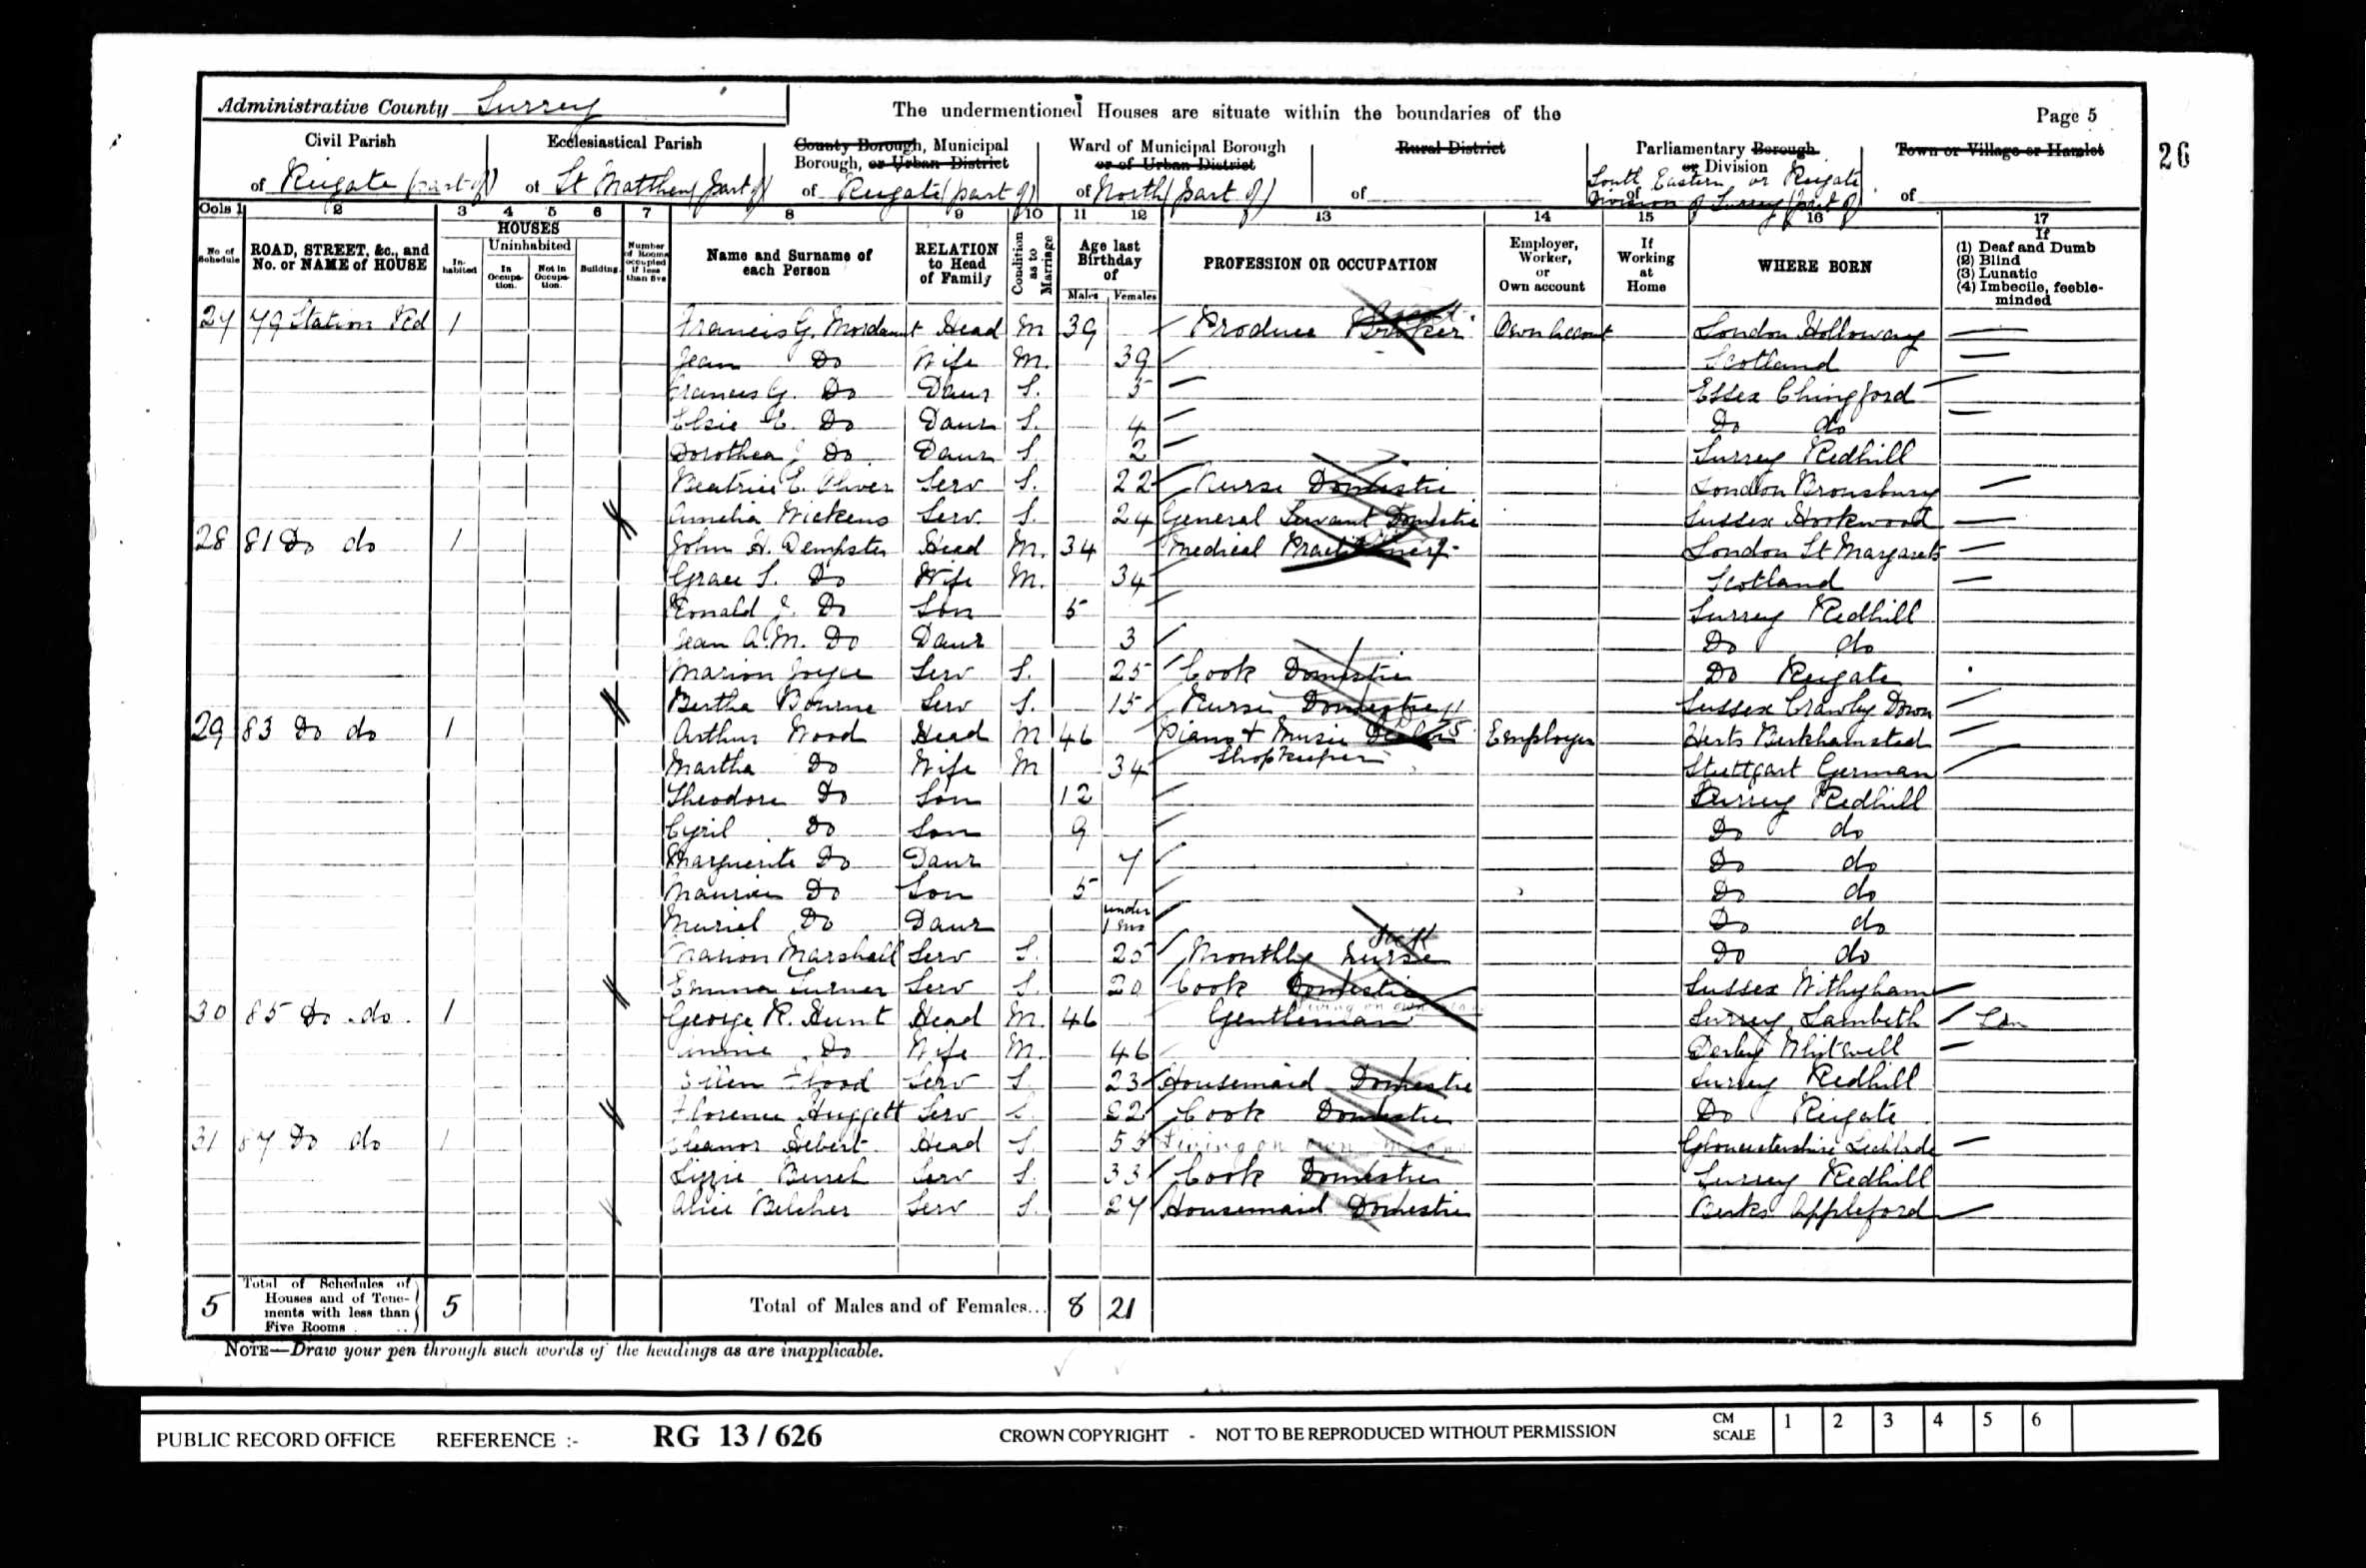 Administrative County Surrey
The undermentioned Houses are situate within the boundaries of the
Page 5
26
Civil Parish
of Reigate (part of)
Ecclesiastical Parish
of St Matthew (part of)
County Borough, Municipal Borough, or Urban District
of Reigate (part of)
Ward of Municipal Borough or of Urban District
of North (part of)
Rural District
of
Parliamentary Borough or Division
of South Eastern or Reigate Division of Surrey (part of)
Town or Village or Hamlet
of
Cols 1 2 3 4 5 6 7 8 9 10 11 12 13 14 15 16 17
No. of Schedule
ROAD, STREET, &c., and No. or NAME of HOUSE
HOUSES
Inhabited
Uninhabited
In Occupation.
Not in Occupation.
Building.
Number of Rooms occupied if less than five
Name and Surname of each Person
RELATION to Head of Family
Condition as to Marriage
Age last Birthday of
Males Females
PROFESSION OR OCCUPATION
Employer, Worker, or Own account
If Working at Home
WHERE BORN
If (1) Deaf and Dumb (2) Blind (3) Lunatic (4) Imbecile, feeble-minded
27 79 Station Rd 1 Francis G. Mordaunt Head M 39 Produce Broker Own Account London Holloway
Jean Do Wife M. 39 Scotland
Frances G. Do Daur S. 5 Essex Chingford
Elsie E. Do Daur S. 4 Do do
Dorothea Do Daur S. 2 Surrey Redhill
Beatrice E. Oliver Serv S. 22 Nurse Domestic London Bronsbury
Amelia Wickens Serv. S. 24 General Servant Domestic Sussex Hookwood
28 81 Do do 1 John H. Dempster Head M. 34 Medical Practitioner London St Margarets
Grace S. Do Wife M. 34 Scotland
Ronald J. Do Son 5 Surrey Redhill
Jean A. M. Do Daur 3 Do do
Marion Joyce Serv S. 25 Cook Domestic Do Reigate
Bertha Bourne Serv S. 15 Nurse Domestic Sussex Crawley Down
29 83 Do do 1 Arthur Wood Head M 46 Piano & Music Dealer Employer Herts Berkhamsted
Martha Do Wife M 34 Shopkeeper Stuttgart German
Theodore Do Son 12 Surrey Redhill
Cyril Do Son 9 Do do
Marguerite Do Daur 7 Do do
Maurice Do Son 5 Do do
Muriel Do Daur under 1 mo Do do
Marion Marshall Serv S. 25 Monthly Nurse Sick Do do
Emma Turner Serv S. 20 Cook Domestic Sussex Withyham
30 85 Do do. 1 George R. Hunt Head M. 46 Gentleman Living on own Surrey Lambeth Lon
Annie Do Wife M. 46 Derby Whitwell
Ellen Flood Serv S. 23 Housemaid Domestic Surrey Redhill
Florence Huggett Serv S. 22 Cook Domestic Do Reigate
31 87 Do do 1 Eleanor Hebert Head S. 55 Living on own means Gloucestershire Lechlade
Lizzie Burch Serv S. 33 Cook Domestic Surrey Redhill
Alice Belcher Serv S. 27 Housemaid Domestic Berks Appleford
5 Total of Schedules of Houses and of Tenements with less than Five Rooms 5 Total of Males and of Females... 8 21
NOTE—Draw your pen through such words of the headings as are inapplicable.
PUBLIC RECORD OFFICE REFERENCE :- RG 13 / 626 CROWN COPYRIGHT - NOT TO BE REPRODUCED WITHOUT PERMISSION CM SCALE 1 2 3 4 5 6